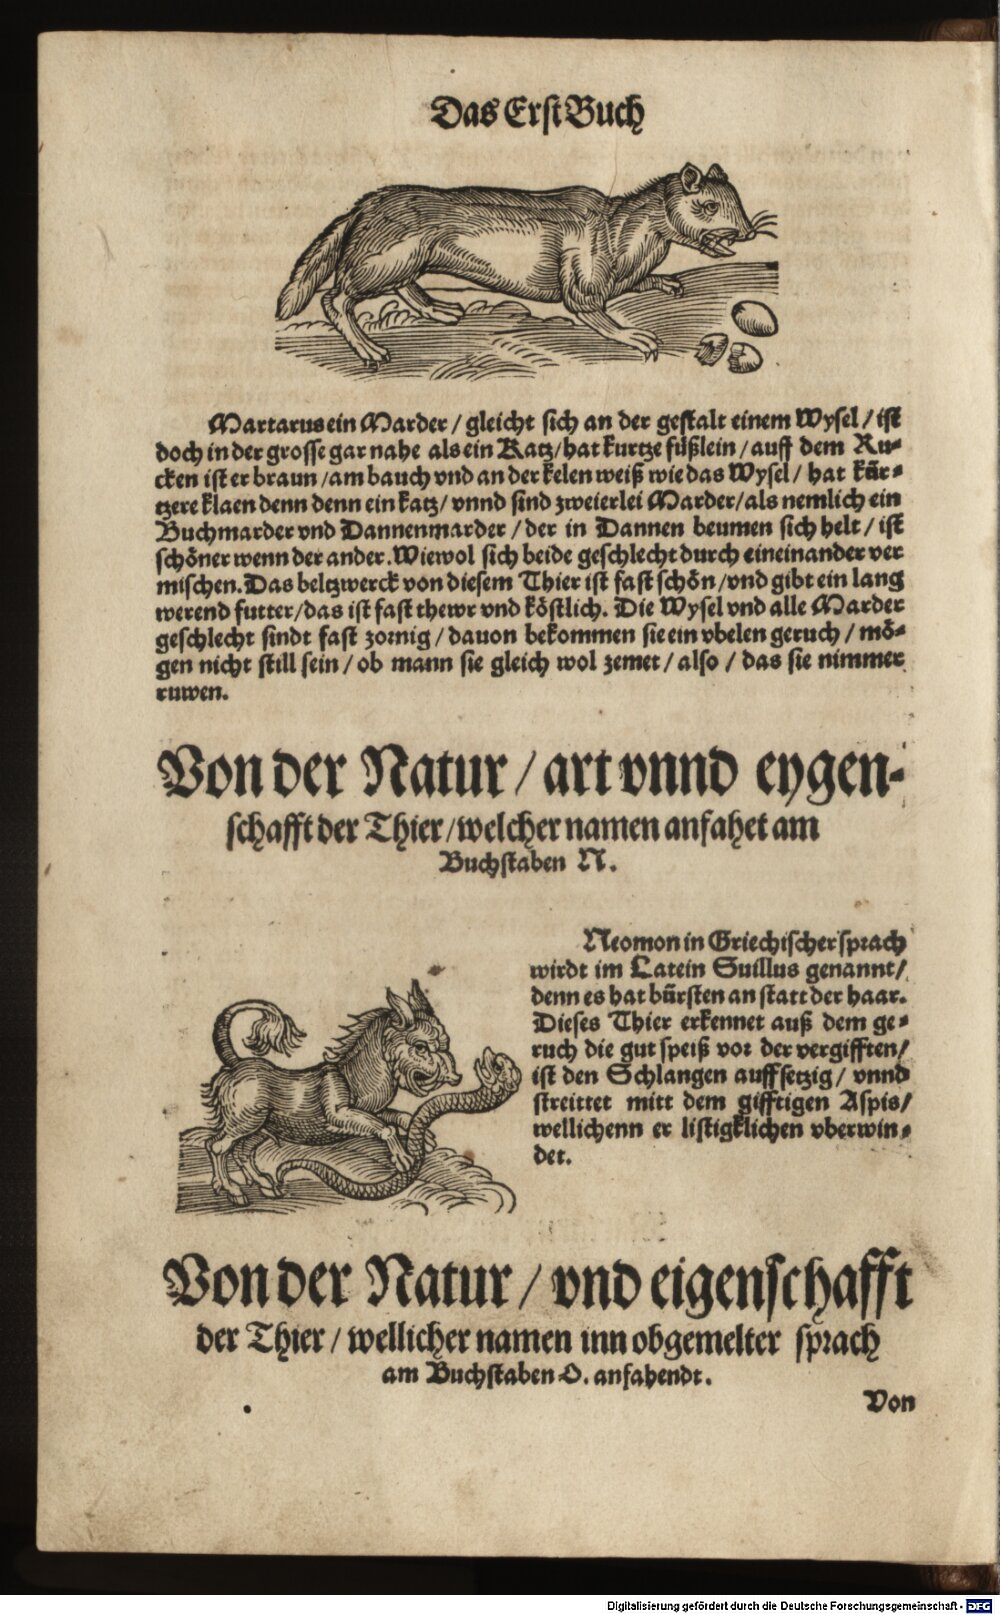 Das Erst Buch
Martarus ein Marder / gleicht sich an der gestalt einem Wysel / ist
doch in der grosse gar nahe als ein Katz / hat kurtze füßlein / auff dem Ru-
cken ist er braun / am bauch vnd an der kelen weiß wie das Wysel / hat kür-
tzere klaen denn denn ein katz / vnnd sind zweierlei Marder / als nemlich ein
Buchmarder vnd Dannenmarder / der in Dannen beumen sich helt / ist
schöner wenn der ander. Wiewol sich beide geschlecht durch eineinander ver
mischen. Das beltzwerck von diesem Thier ist fast schön / vnd gibt ein lang
werend futter / das ist fast thewr vnd köstlich. Die Wysel vnd alle Marder
geschlecht sindt fast zornig / dauon bekommen sie ein vbelen geruch / mö-
gen nicht still sein / ob mann sie gleich wol zemet / also / das sie nimmer
ruwen.
Von der Natur / art vnnd eygen-
schafft der Thier / welcher namen anfahet am
Buchstaben N.
Neomon in Griechischer sprach
wirdt im Latein Suillus genannt /
denn es hat bürsten an statt der haar.
Dieses Thier erkennet auß dem ge-
ruch die gut speiß vor der vergifften /
ist den Schlangen auffsetzig / vnnd
streittet mitt dem gifftigen Aspis /
wellichenn er listigklichen vberwin-
det.
Von der Natur / vnd eigenschafft
der Thier / wellicher namen inn obgemelter sprach
am Buchstaben O. anfahendt.
Von
Digitalisierung gefördert durch die Deutsche Forschungsgemeinschaft - DFG